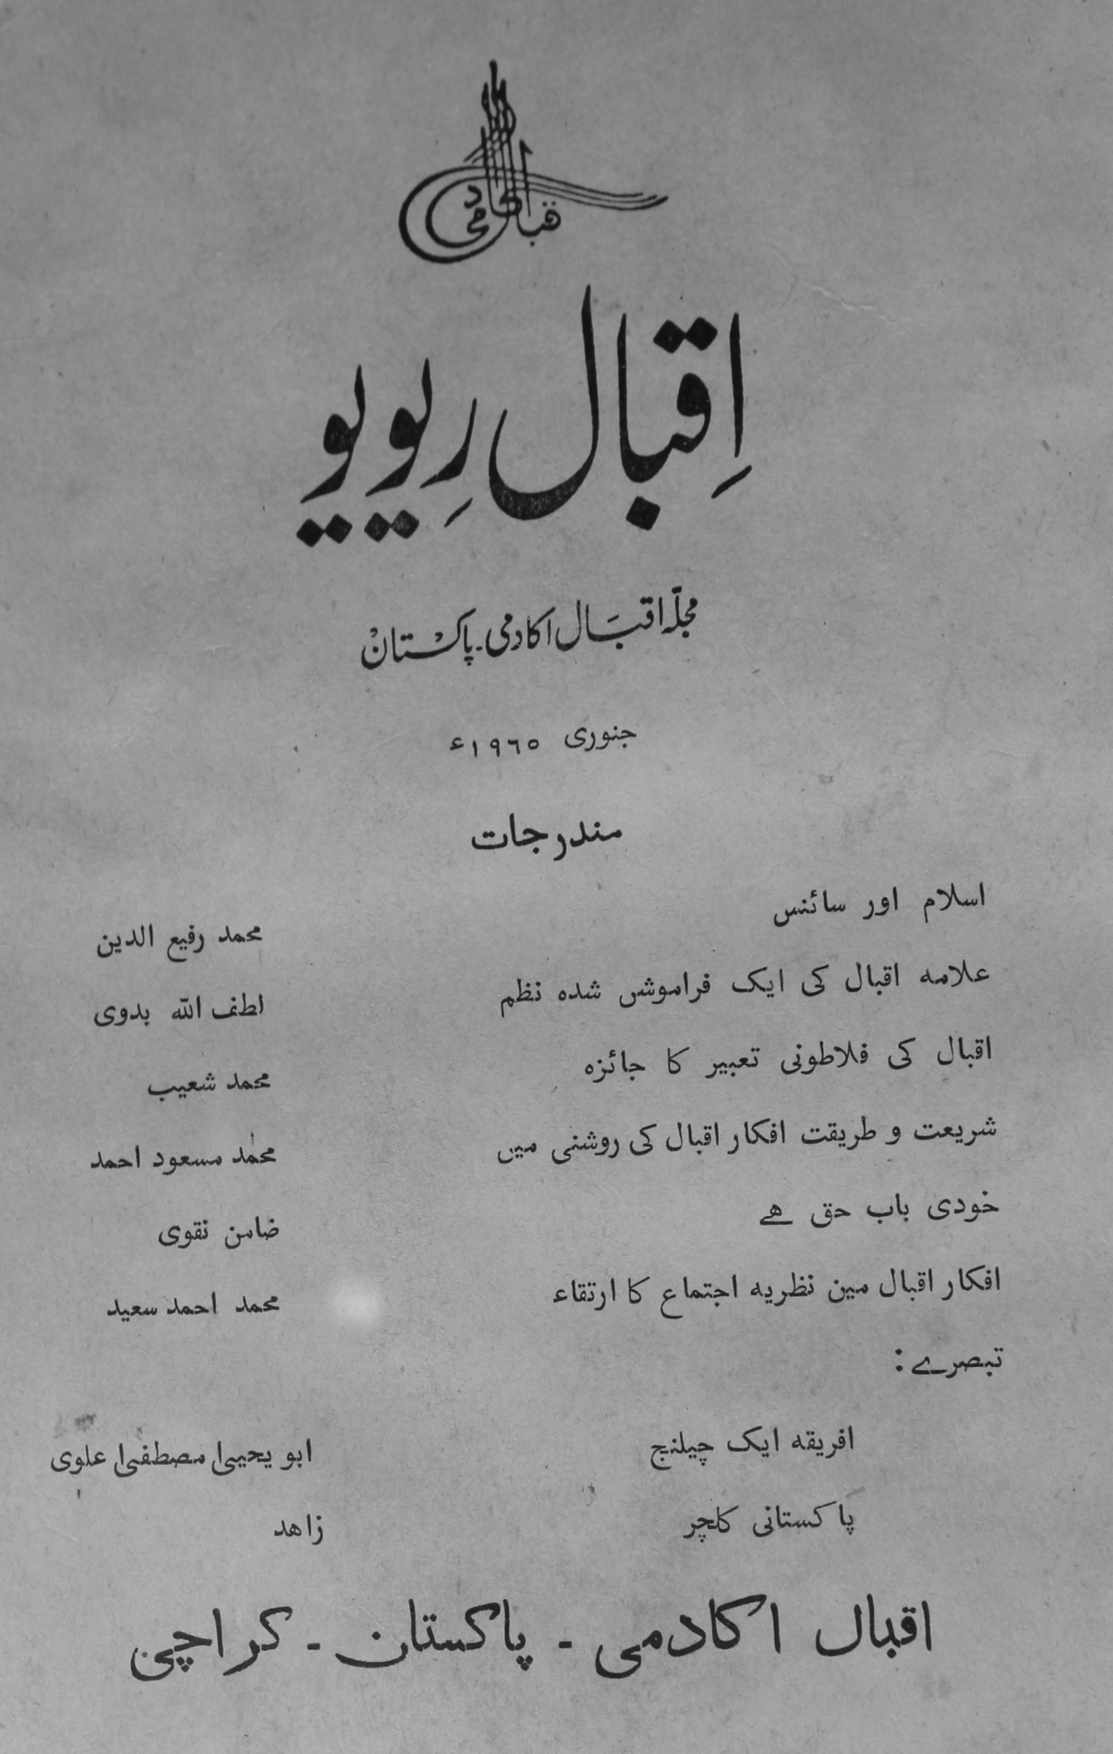 اقبال اکادمی
اِقبال رِیویو
مجلّہ اقبَال اکادمی۔پاکسْتانْ
جنوری ۱۹٦۵ء
مندرجات
اسلام اور سائنس محمد رفیع الدین
علامہ اقبال کی ایک فراموش شدہ نظم لطف اللہ بدوی
اقبال کی فلاطونی تعبیر کا جائزہ محمد شعیب
شریعت و طریقت افکار اقبال کی روشنی میں محمد مسعود احمد
خودی باب حق ھے ضامن نقوی
افکار اقبال مین نظریہ اجتماع کا ارتقاء محمد احمد سعید
تبصرے :
افریقہ ایک چیلنج ابو یحییٰ مصطفیٰ علوی
پاکستانی کلچر زاھد
اقبال اکادمی ۔ پاکستان ۔ کراچی